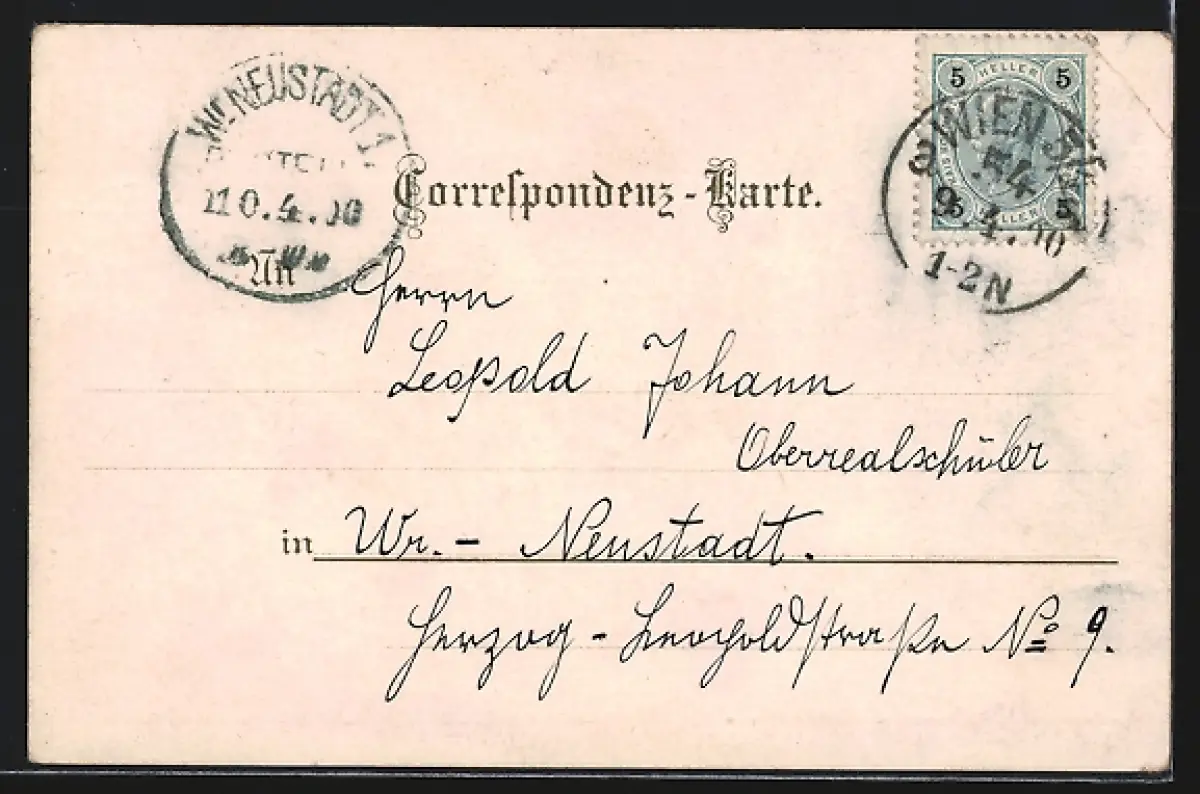 WR. NEUSTADT 1.
10.4.00
Correspondenz-Karte.
5 HELLER 5
WIEN
54
9.4.00
1-2N
5 HELLER 5
An
Herrn
Leopold Johann
Oberrealschüler
in Wr.- Neustadt.
Herzog-Leopoldstraße No 9.